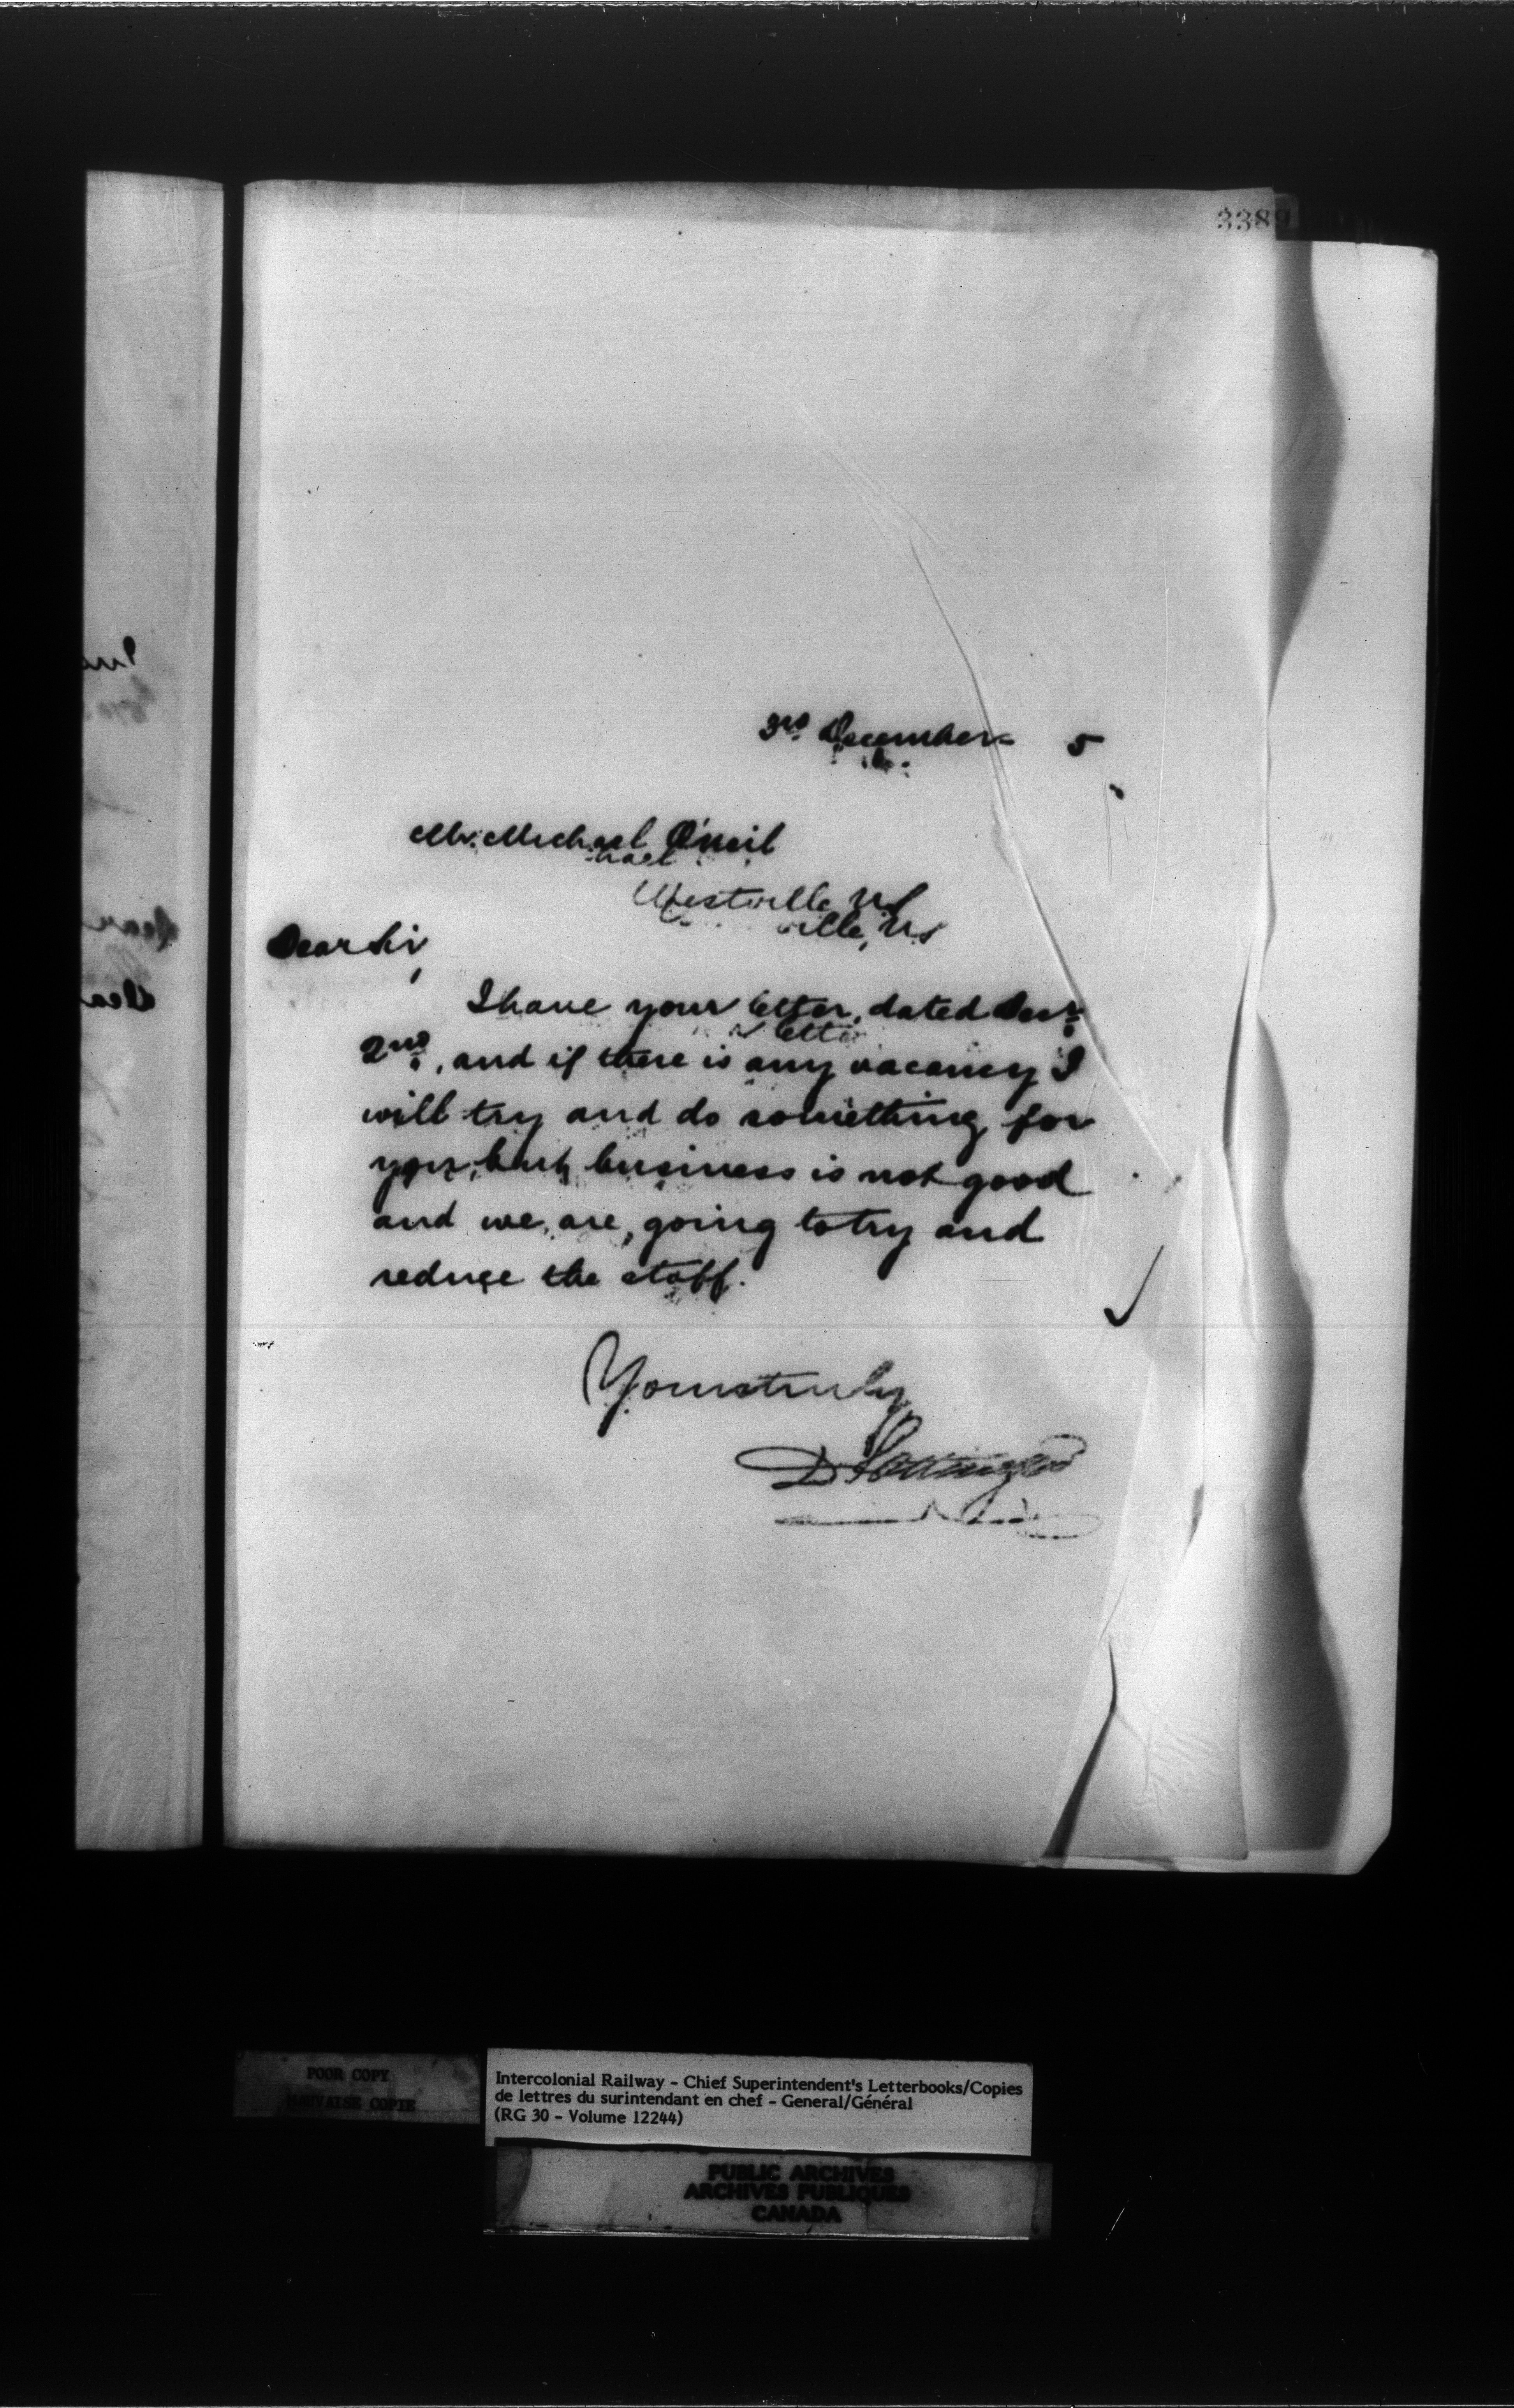 3389
3rd December 5
Mr. Michael O'neil
Westville, NS
Dear Sir,
I have your letter, dated Decr.
2nd., and if there is any vacancy I
will try and do something for
you, but business is not good
and we are, going to try and
reduce the staff.
Yours truly
D Pottinger
POOR COPY
MAUVAISE COPIE
Intercolonial Railway - Chief Superintendent's Letterbooks/Copies
de lettres du surintendant en chef - General/Général
(RG 30 - Volume 12244)
PUBLIC ARCHIVES
ARCHIVES PUBLIQUES
CANADA